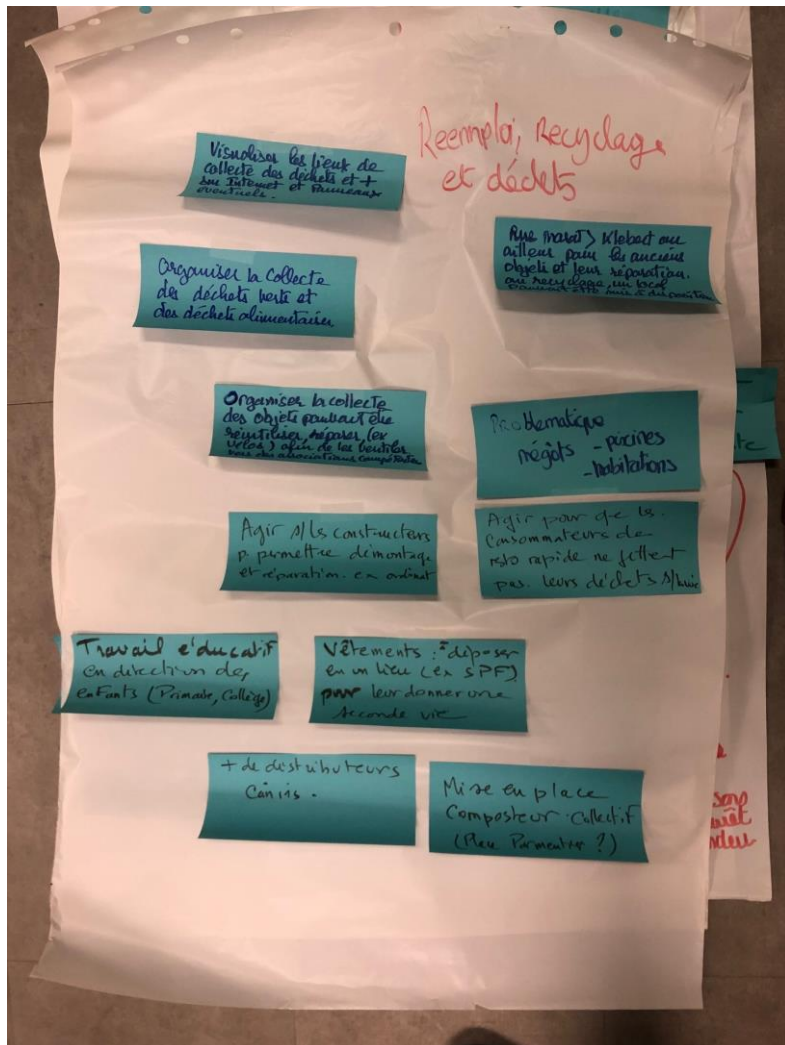 Reemploi, Recyclage
et déchets
Visualiser les lieux de
collecte des déchets et +
sur Internet et Panneaux
éventuels.
Rue Marat > Kleber ou
ailleurs pour les anciens
objets et leur réparation.
ou recyclage, un local
pourrait être mis à disposition
Organiser la collecte
des déchets verts et
des déchets alimentaires
Organiser la collecte
des objets pouvant être
réutiliser, réparer (ex
vélos) afin de les
vers des associations compétentes
Problematique
mégots - piscines
- habitations
Agir s/ls constructeurs
p. permettre démontage
et réparation. ex ordinat
Agir pour que ls
consommateurs de
resto rapide ne jettent
pas leurs déchets s/
Travail éducatif
en direction des
enfants (Primaire, Collège)
Vêtements : déposer
en un lieu (ex SPF)
pour leur donner une
seconde vie
+ de distributeurs
Canins.
Mise en place
Composteur Collectif
(Place Parmentier ?)